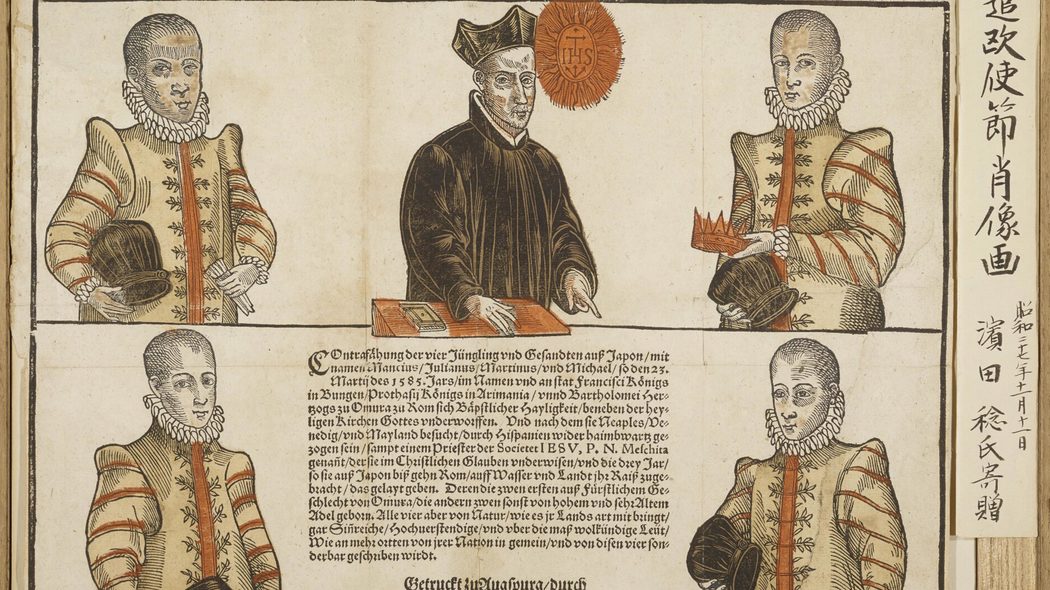 IHS
COntrafähung der vier Jüngling vnd Gesandten auß Japon/mit
namen Mancius/Julianus/Martinus/vnd Michael/so den 23.
Martij des 1585. Jars/im Namen vnd an stat Francisci Königs
in Bungen/Prothasij Königs in Arimania/vnnd Bartholomei Her-
tzogs zu Omura zu Rom sich Bäpstlicher Hayligkeit/beneben der hey-
ligen Kirchen Gottes vnderworffen. Vnd nach dem sie Neaples/Ve-
nedig/vnd Mayland besucht/durch Hispanien wider haimbwartz ge-
zogen sein/sampt einem Priester der Societet IESV, P. N. Meschita
genañt/der sie im Christlichen Glauben vnderwisen/vnd die drey Jar/
so sie auß Japon biß gehn Rom/auff Wasser vnd Landt jhr Raiß zuge-
bracht/das gelayt geben. Deren die zwen ersten auß Fürstlichem Ge-
schlecht von Omura/die andern zwen sonst von hohem vnd sehr Altem
Adel geborn. Alle vier aber von Natur/wie es jr Lands art mit bringt/
gar Siñreiche/Hochuerstendige/vnd vber die maß wolkündige Leüt/
Wie an mehr ortten von jrer Nation in gemein/vnd von disen vier son-
derbar geschriben wirdt.
Getruckt zu Augspurg/durch
遣欧使節肖像画
昭和二十七年十一月十一日
濱田 稔氏寄贈